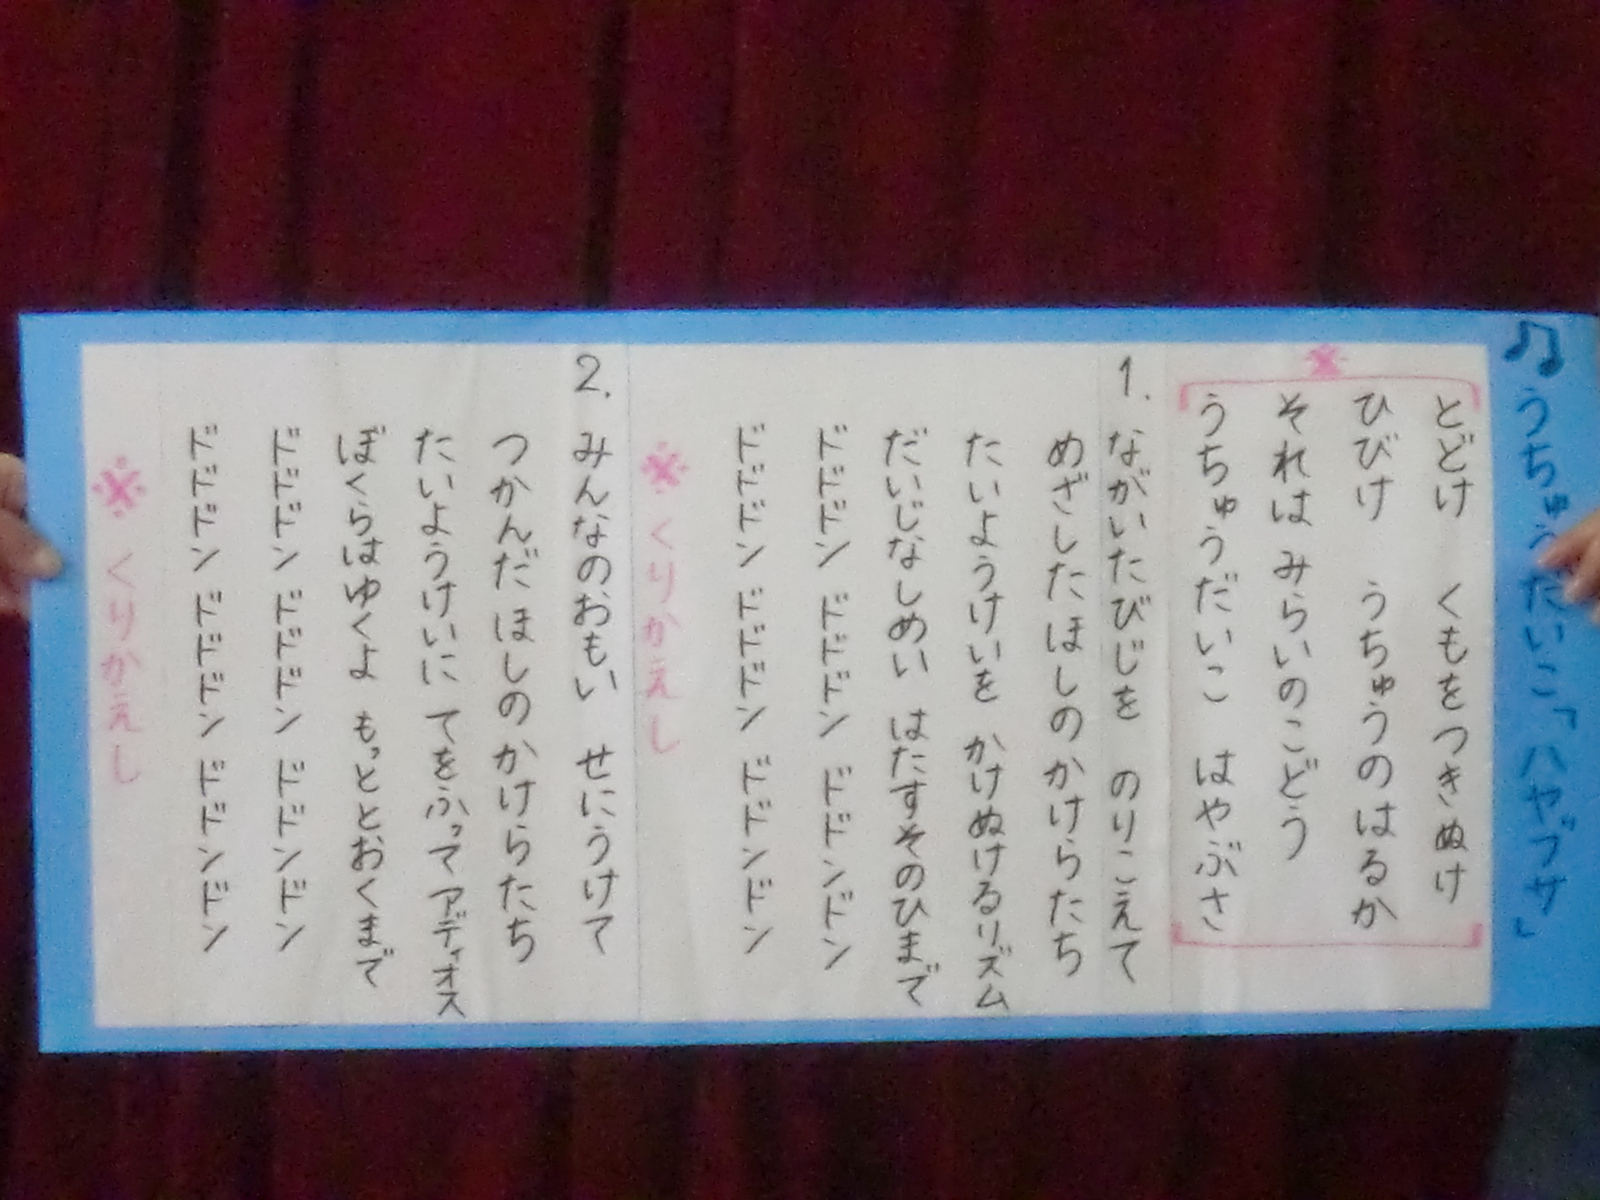 ♫うちゅうだいこ「ハヤブサ」
※
とどけ　くもをつきぬけ
ひびけ　うちゅうのはるか
それは みらいのこどう
うちゅうだいこ　はやぶさ
1. ながいたびじを　のりこえて
めざしたほしのかけらたち
たいようけいを かけぬけるリズム
だいじなしめい はたすそのひまで
ドドドン ドドドン ドドンドン
ドドドン ドドドン ドドンドン
※ くりかえし
2. みんなのおもい　せにうけて
つかんだ ほしの かけらたち
たいようけいに てをふって アディオス
ぼくらはゆくよ もっととおくまで
ドドドン ドドドン ドドンドン
ドドドン ドドドン ドドンドン
※ くりかえし